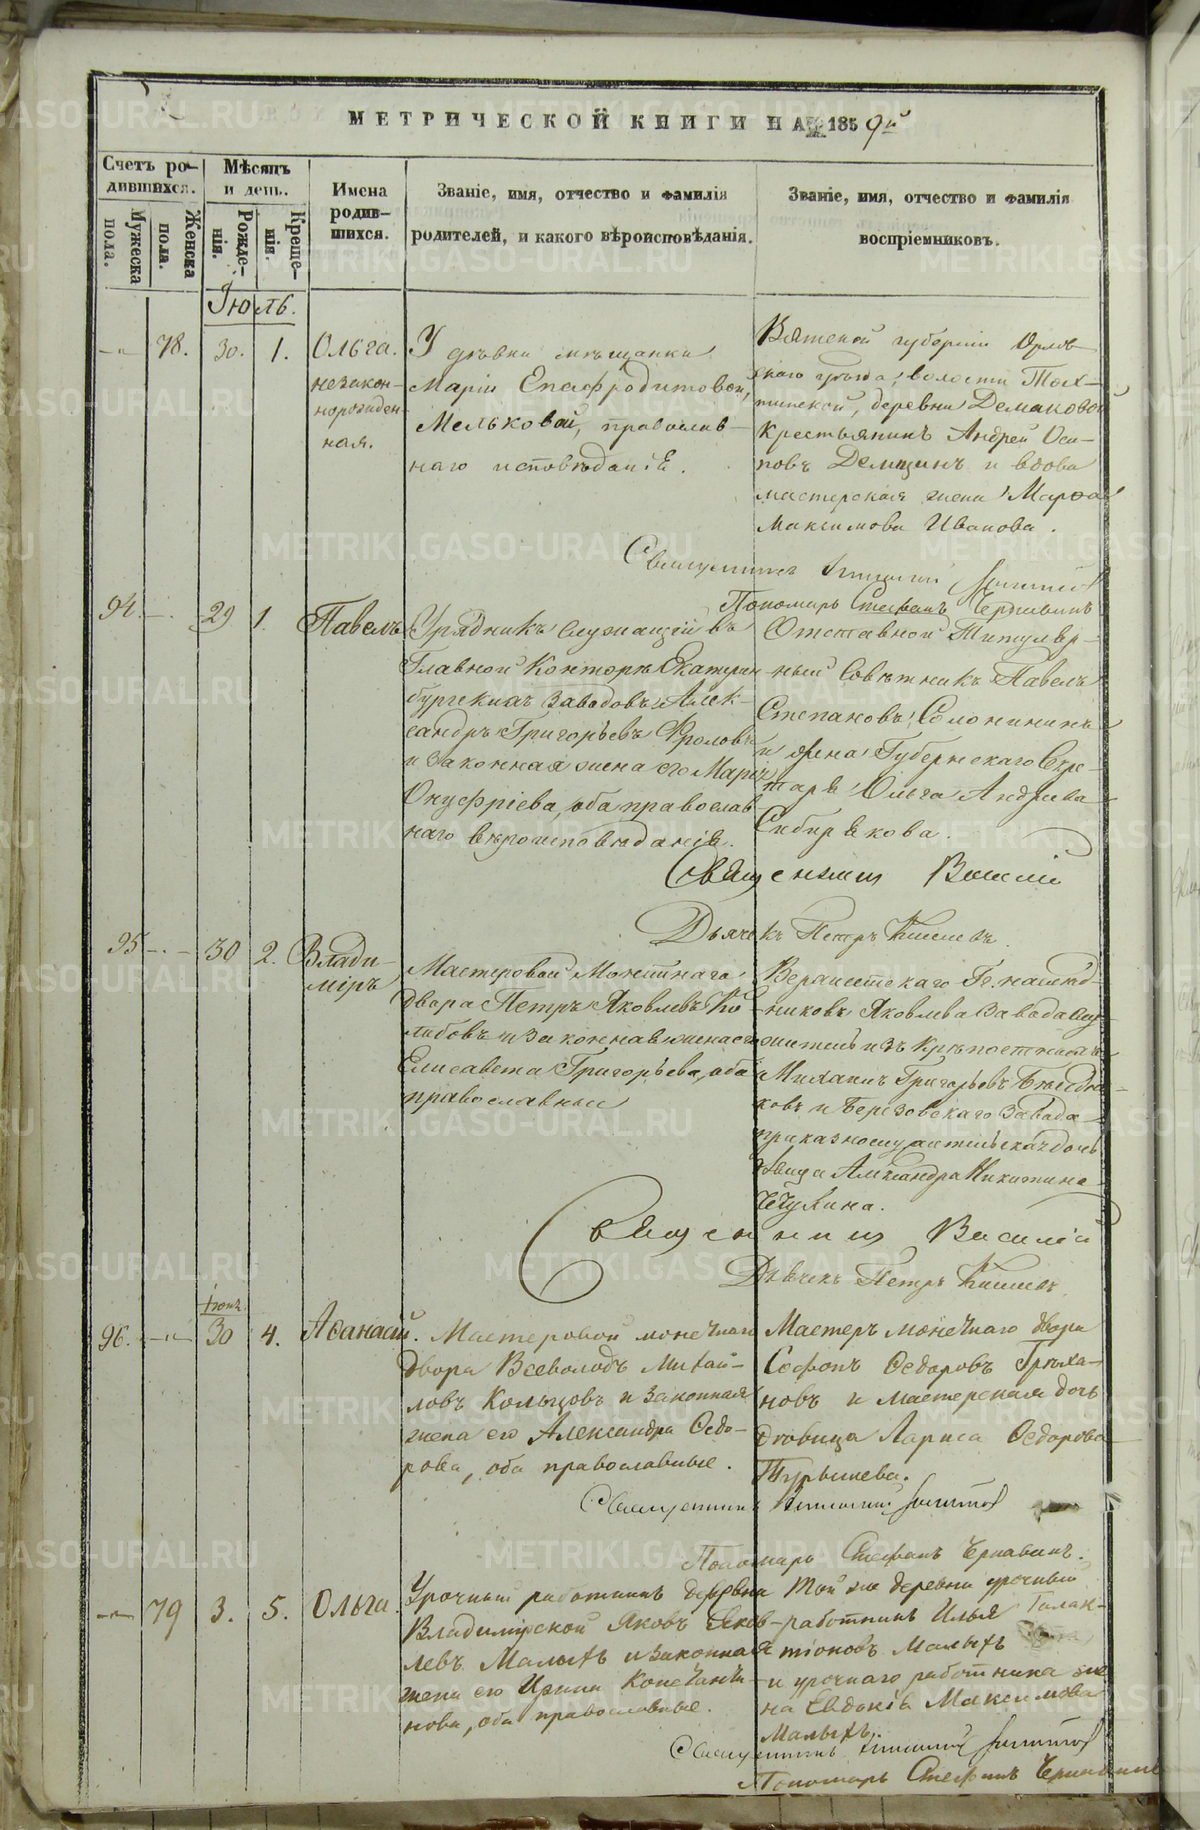 МЕТРИЧЕСКОЙ КНИГИ НА 1859й
Счетъ ро-
дившихся.
Мужеска
пола.
Женска
пола.
Мѣсяцъ
и день.
Рожде-
нія.
Креще-
нія.
Имена
родив-
шихся.
Званіе, имя, отчество и фамилія
родителей, и какого вѣроисповѣданія.
Званіе, имя, отчество и фамилія
воспріемниковъ.
Іюль.
78. 30. 1.
Ольга.
незакон-
норожден-
ная.
У дѣвки мѣщанки
Маріи Епафродитовой,
Мельковой, православ-
наго исповѣданія.
Вятской губерніи Орлов-
скаго уѣзда, волости
деревни Демаковой
крестьянинъ Андрей Оси-
повъ Демшинъ и вдова
мастерская жена Марѳа
Максимова Иванова.
Священникъ
Пономарь Стефанъ Чернавинъ
94. 29 1.
Павелъ
Урядникъ служащій въ
Главной Конторѣ Екатерин-
бургскихъ заводовъ Алек-
сандръ Григорьевъ Фроловъ
и законная жена его Марія
Онуфріева, оба православ-
наго вѣроисповѣданія.
Отставной Титуляр-
ный Совѣтникъ Павелъ
Степановъ Солонининъ
и жена Губернскаго Секре-
таря Ольга Андреева
Сибирякова.
Священникъ Василій
Дьячекъ Петръ
95 30 2.
Влади-
міръ
Мастеровой Монетнаго
двора Петръ Яковлевъ Ко-
лабовъ и законная жена его
Елисавета Григорьева, оба
православные
Верхисетскаго Гг. наслѣд-
никовъ Яковлева завода слу-
житель изъ крѣпостныхъ
Михаилъ Григорьевъ
ковъ и Березовскаго завода
приказнослужительская дочь
дѣвица Александра Никитина
Чечулина.
Священникъ Василій
Дьячекъ Петръ
Іюня
96. 30 4.
Аѳанасій.
Мастеровой монетнаго
двора Всеволодъ Михай-
ловъ Кольцовъ и законная
жена его Александра Ѳедо-
рова, оба православные.
Мастеръ монетнаго двора
Софонъ Ѳедоровъ Грѣха-
новъ и мастерская дочь
дѣвица Лариса Ѳедорова
Турышева.
Священникъ
Пономарь Стефанъ Чернавинъ.
79 3. 5.
Ольга.
Урочный работникъ деревни
Владимірской Яковъ Яков-
левъ Малыхъ и законная
жена его Ирина Константи-
нова, оба православные.
Той же деревни урочный
работникъ Илья Галак-
тіоновъ Малыхъ
и урочнаго работника же-
на Евдокія Максимова
Малыхъ.
Священникъ
Пономарь Стефанъ Чернавинъ
METRIKI.GASO-URAL.RU